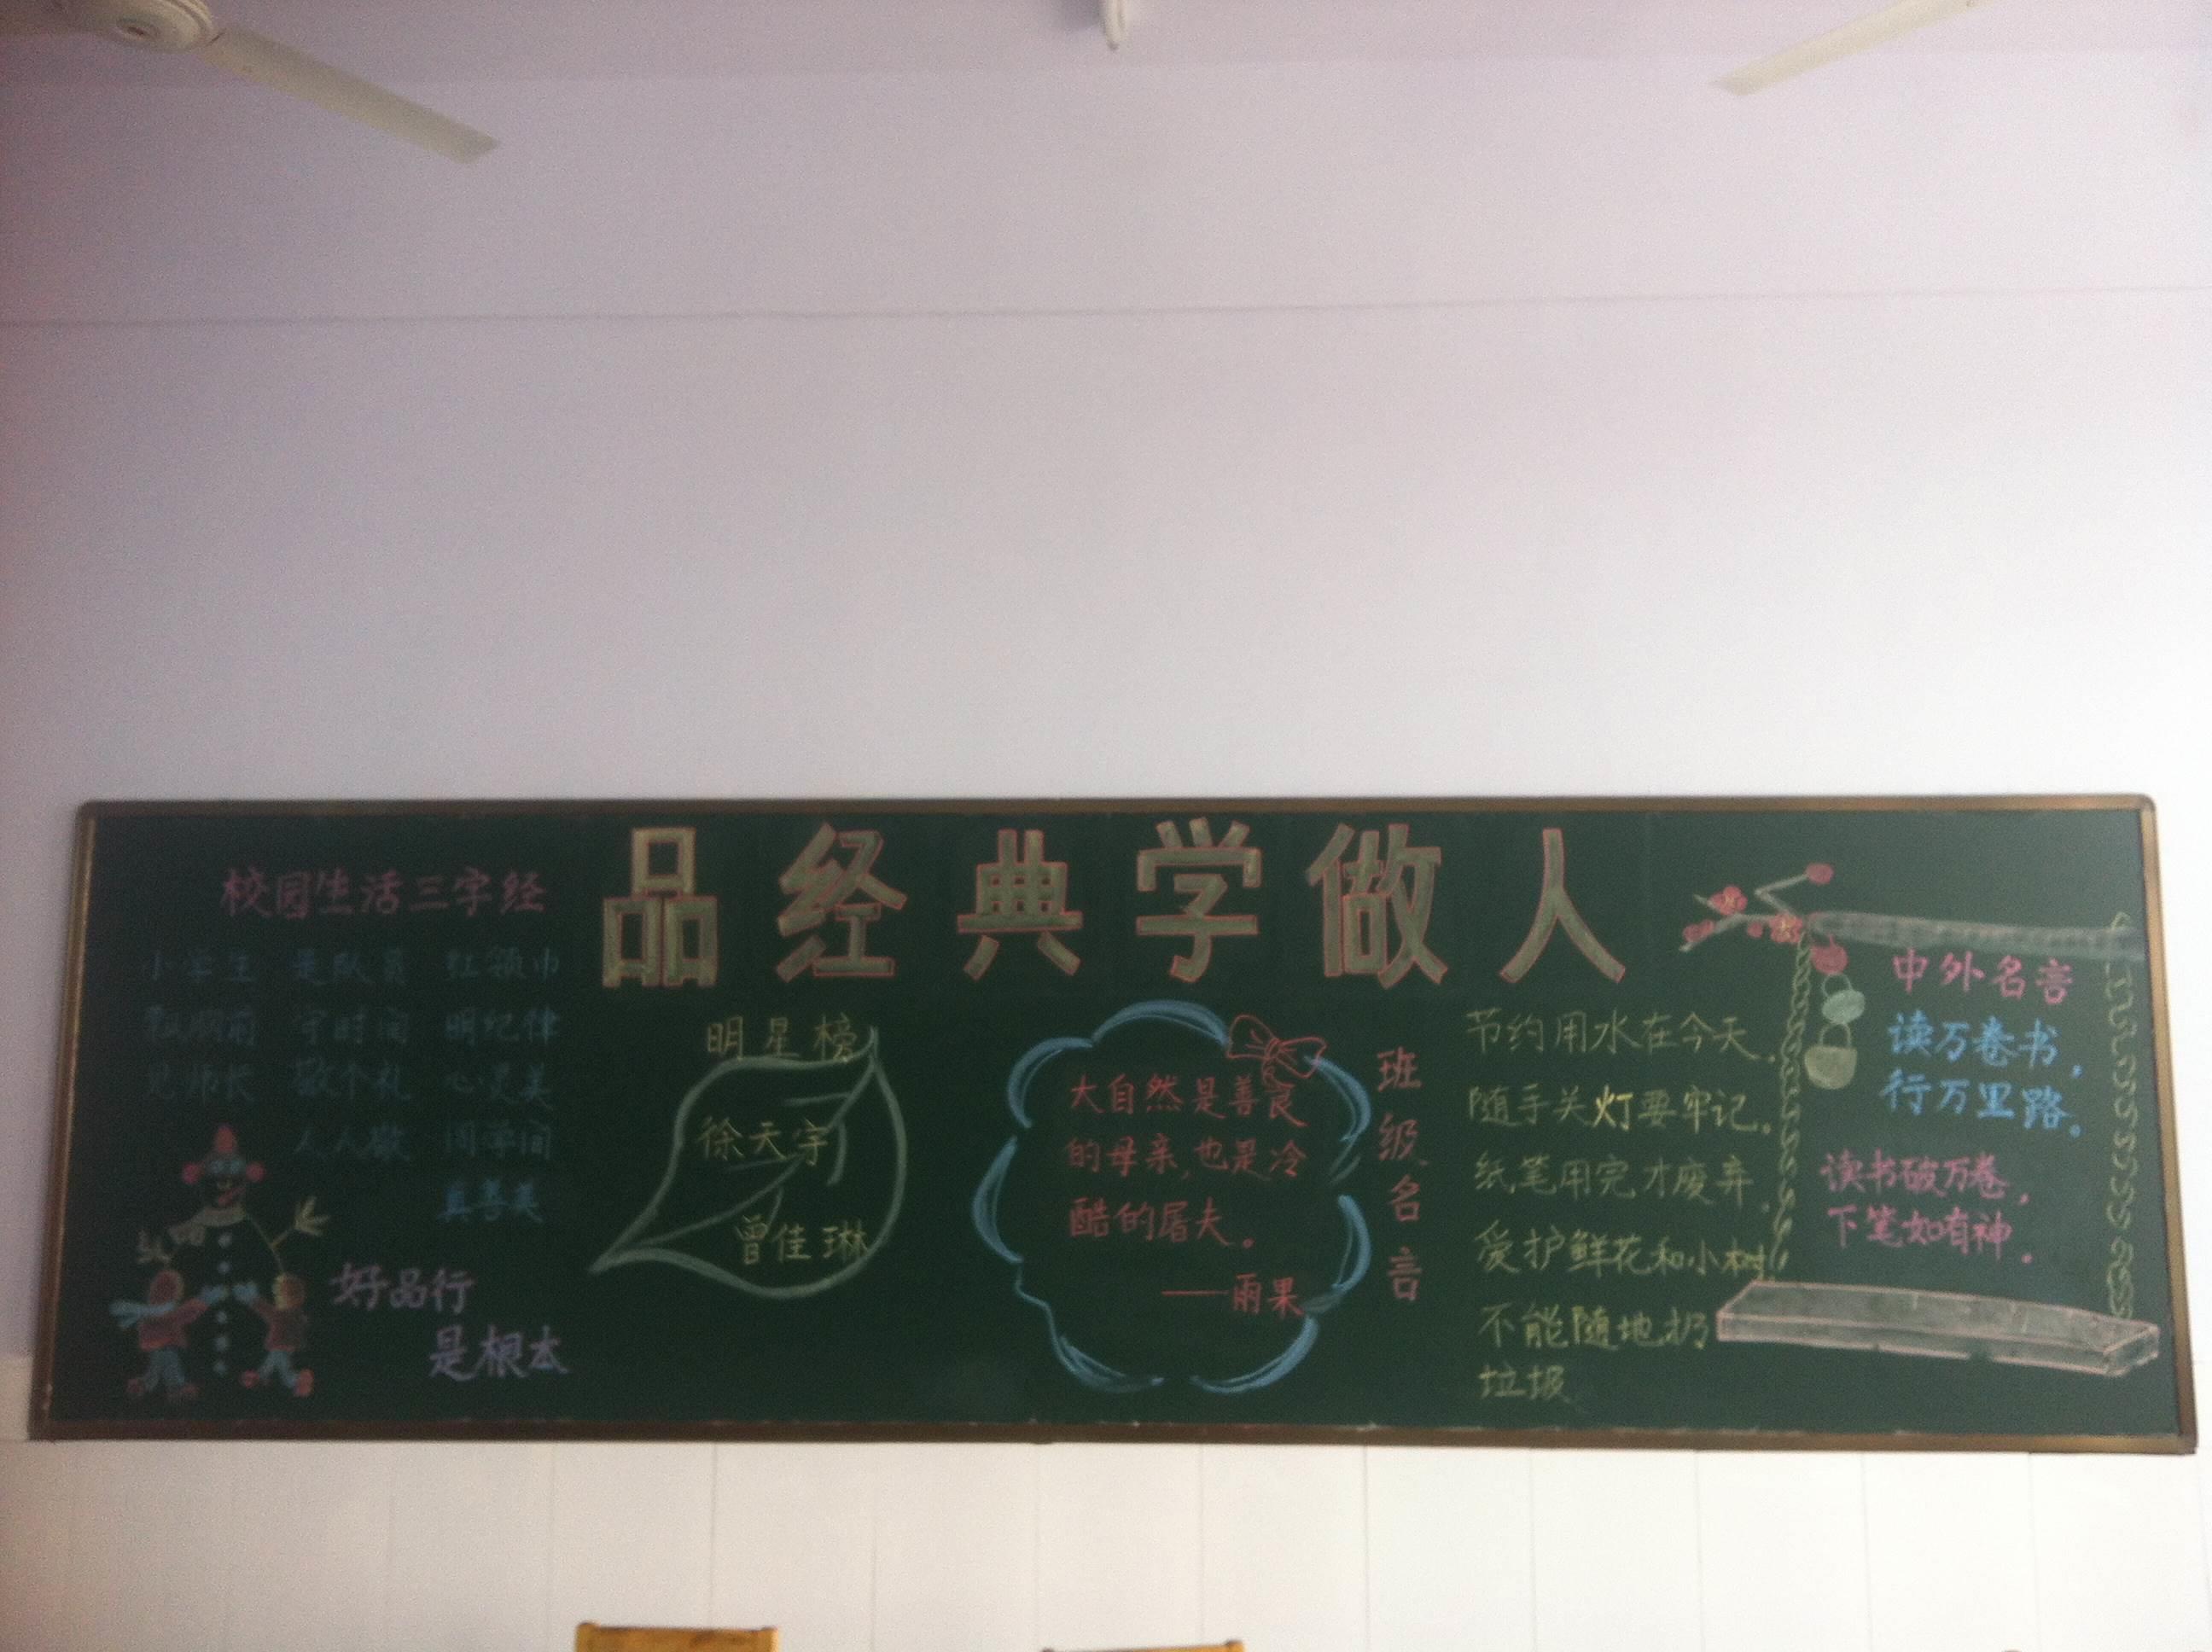 品经典学做人
校园生活三字经
小学生 是队员 红领巾
飘胸前 守时间 明纪律
见师长 敬个礼 心灵美
人人敬 同学间
真善美
好品行
是根本
明星榜
徐天宇
曾佳琳
大自然是善良
的母亲,也是冷
酷的屠夫。
——雨果
班级名言
节约用水在今天,
随手关灯要牢记。
纸笔用完才废弃,
爱护鲜花和小树
不能随地扔
垃圾
中外名言
读万卷书,
行万里路。
读书破万卷,
下笔如有神。